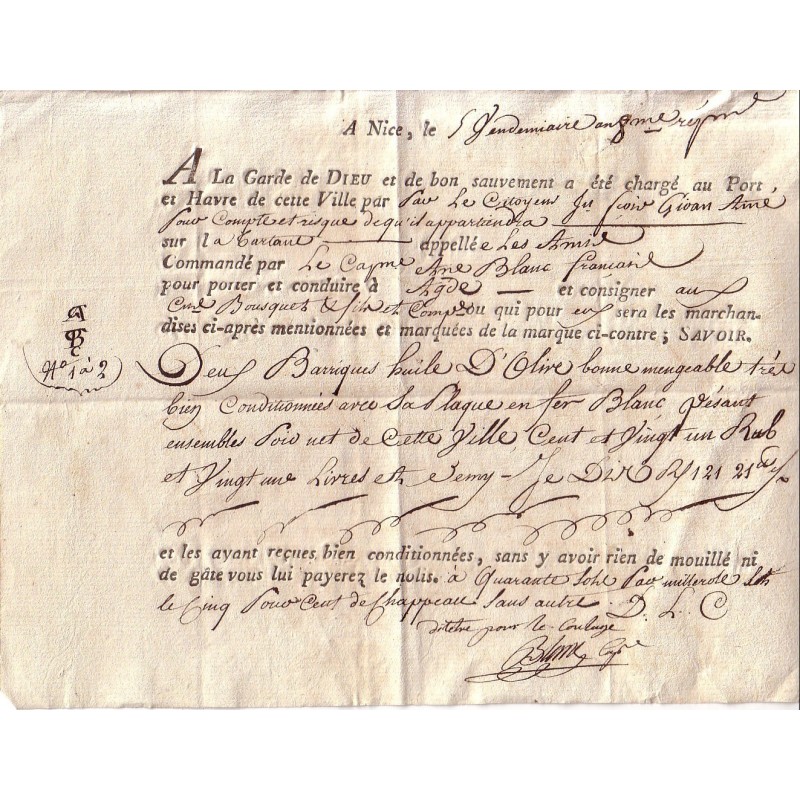 A Nice, le 5 Vendemiaire an 8me
A La Garde de DIEU et de bon sauvement a été chargé au Port,
et Havre de cette Ville par Par Le Citoyens
Pour Compte et risque de qu'il appartiendra
sur la Tartane appellée Les Amis
Commandé par Le Capne Ane Blanc francaise
pour porter et conduire à Agde et consigner aux
Cens Bousquet & fils et Compe ou qui pour eux sera les marchan-
dises ci-après mentionnées et marquées de la marque ci-contre; SAVOIR.
No 1 à 2
Deux Barriques huile D'Olive bonne mengeable très
bien Conditionnées avec Sa Plaque en fer Blanc Pésant
ensembles Poid net de Cette Ville, Cent et Vingt un Rub
et Vingt une Livres et Demy - Je Dix Rs 121 21
et les ayant reçues bien conditionnées, sans y avoir rien de mouillé ni
de gâte vous lui payerez le nolis. à Quarante Sols Par millerole
le Cinq Pour Cent de Chappeau Sans autre D. L. C
pour le
Blanc Cape